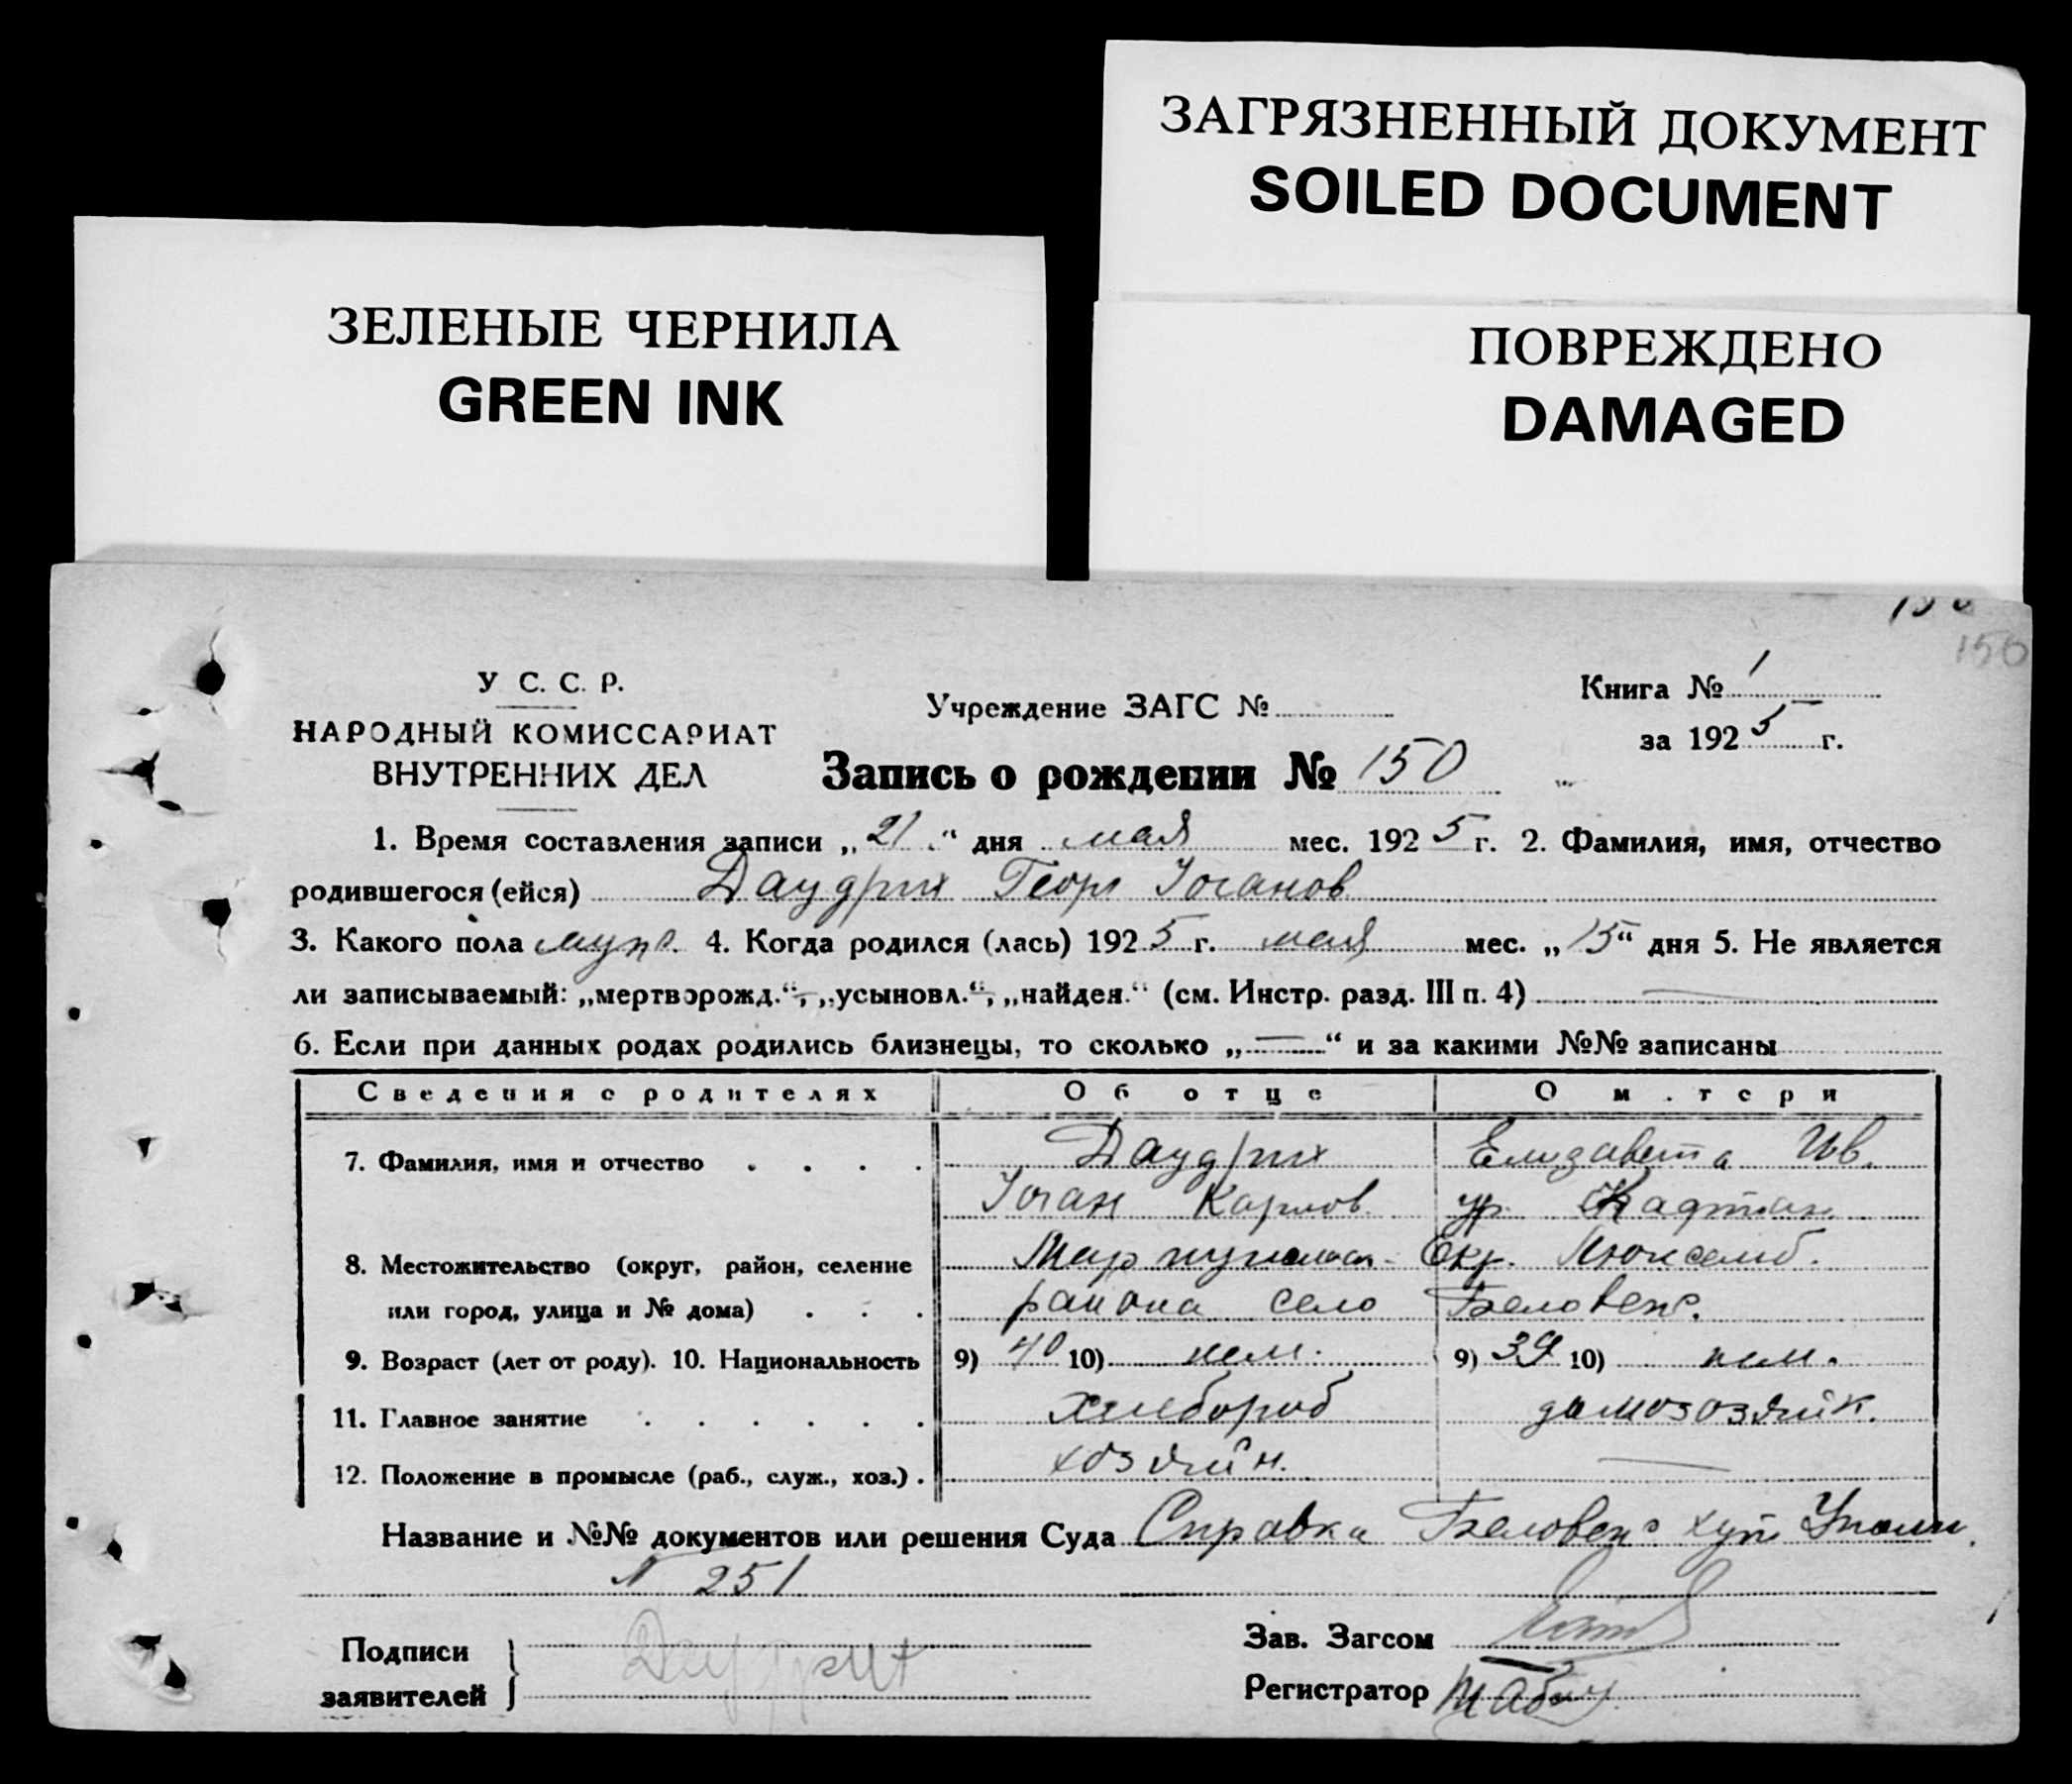 ЗАГРЯЗНЕННЫЙ ДОКУМЕНТ
SOILED DOCUMENT
ЗЕЛЕНЫЕ ЧЕРНИЛА
GREEN INK
ПОВРЕЖДЕНО
DAMAGED
150
У С. С. Р.
НАРОДНЫЙ КОМИССАРИАТ
ВНУТРЕННИХ ДЕЛ
Учреждение ЗАГС №
Книга № 1
за 1925 г.
Запись о рождении № 150
1. Время составления записи „21“ дня мая мес. 1925 г. 2. Фамилия, имя, отчество
родившегося (ейся) Даудрих Георг Иоганов
3. Какого пола муж. 4. Когда родился (лась) 1925 г. мая мес. „15“ дня 5. Не является
ли записываемый: „мертворожд.“, „усыновл.“, „найден.“ (см. Инстр. разд. III п. 4) —
6. Если при данных родах родились близнецы, то сколько „—“ и за какими №№ записаны
Сведения о родителях Об отце О матери
7. Фамилия, имя и отчество Даудрих Елизавета Ив.
Иоган Карлов. ур.
8. Местожительство (округ, район, селение Мариупольск. Окр. Люксемб.
или город, улица и № дома) района село Беловеж.
9. Возраст (лет от роду). 10. Национальность 9) 40 10) нем. 9) 39 10) нем.
11. Главное занятие хлебороб домохозяйк.
12. Положение в промысле (раб., служ., хоз.) хозяйн. —
Название и №№ документов или решения Суда Справка Беловеж. хут.
№ 251
Подписи
заявителей
Зав. Загсом
Регистратор